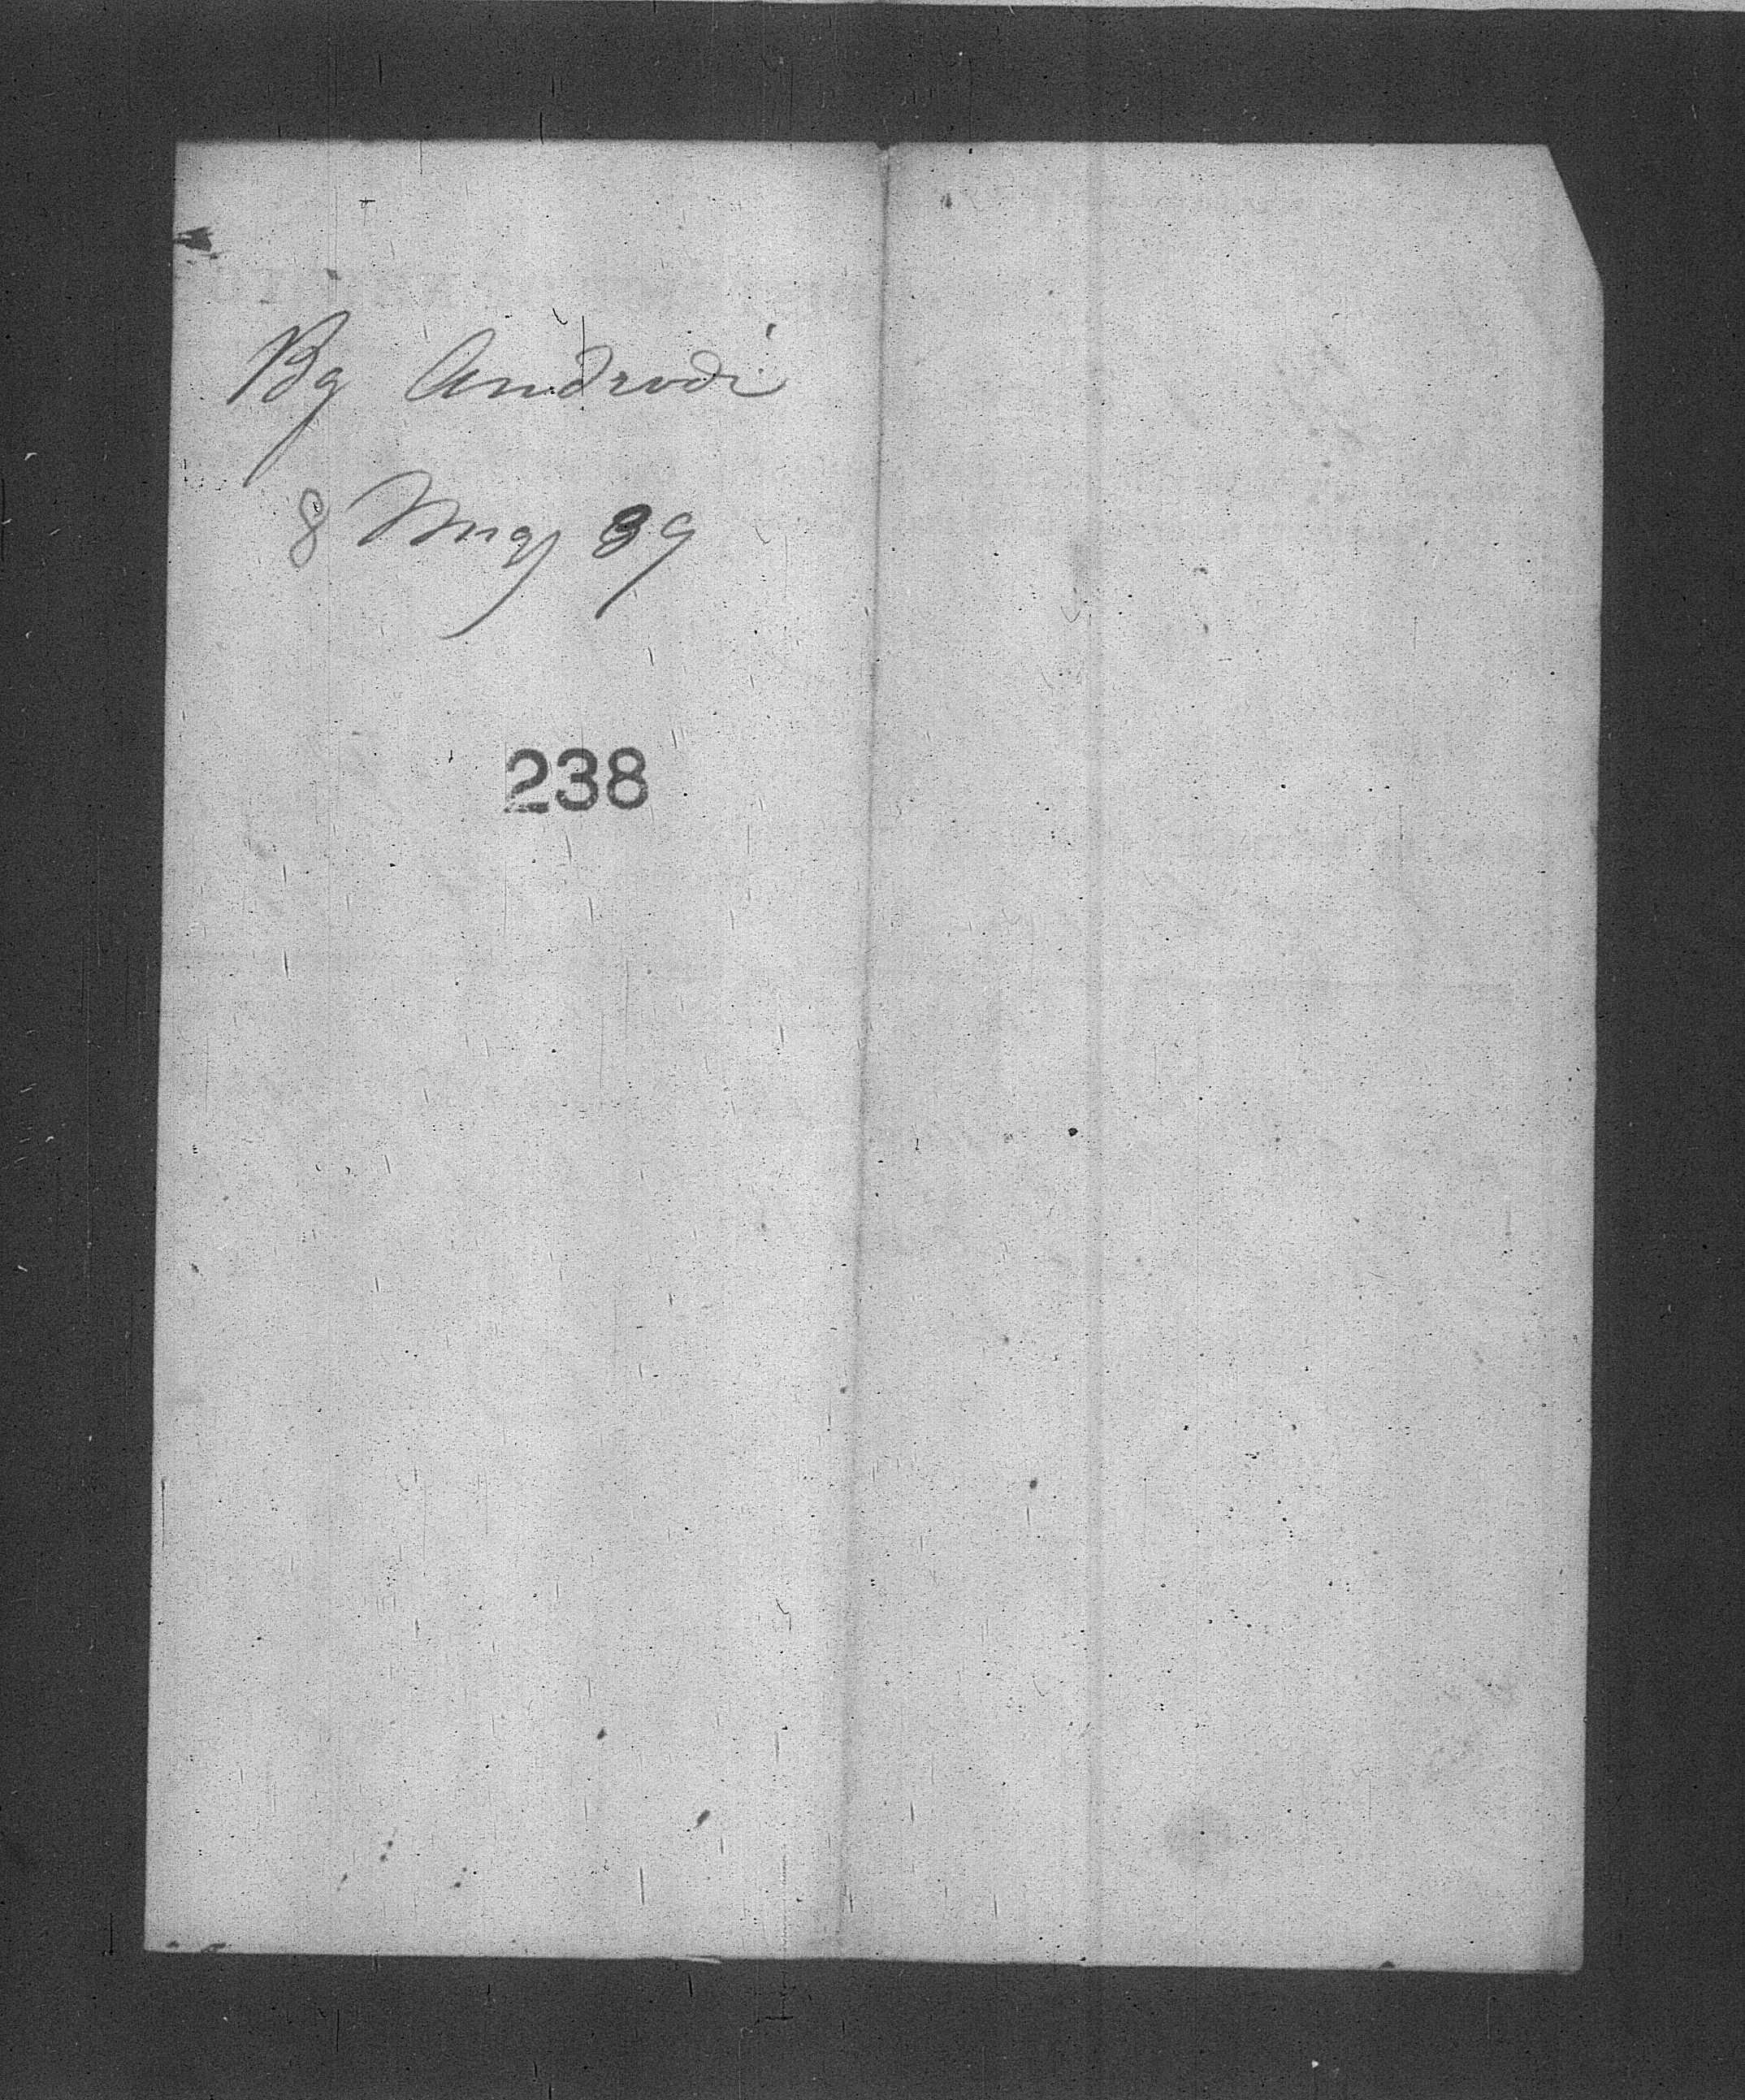 Bg Androdi
8 May 89
238